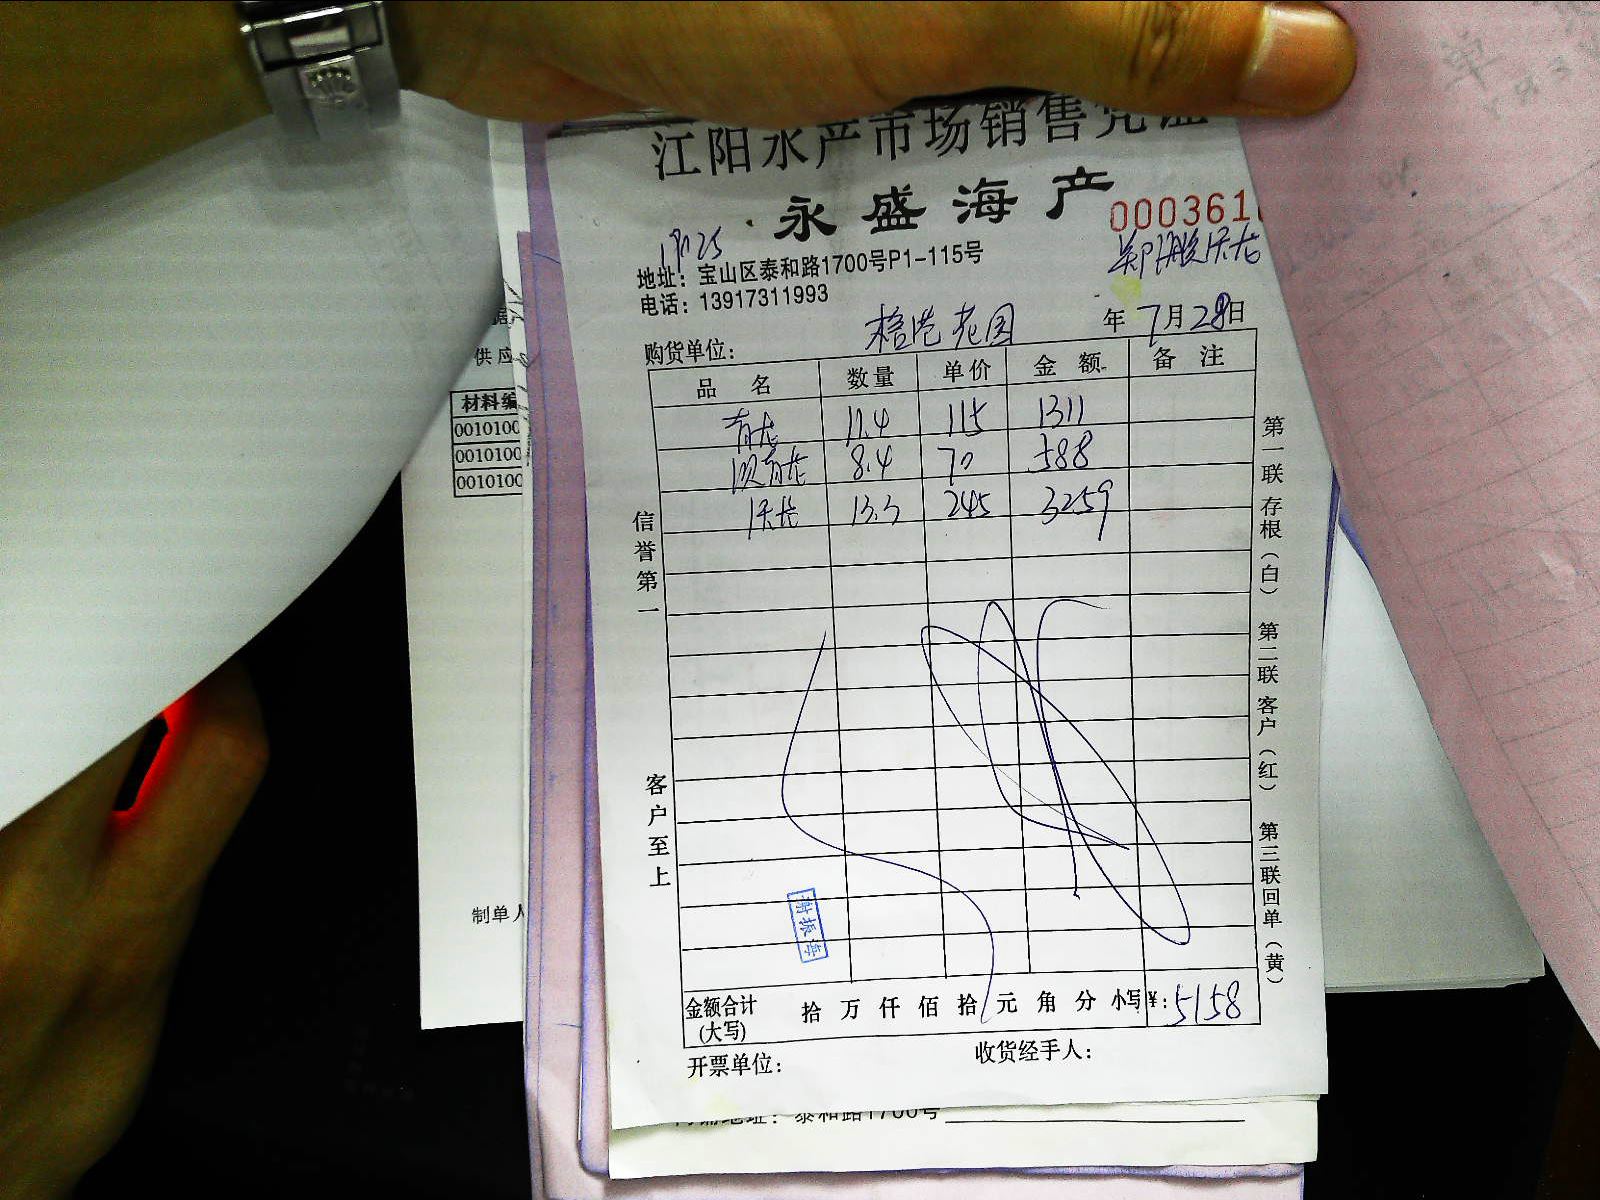 江阳水产市场销售凭证
永盛海产
000361
地址：宝山区泰和路1700号P1-115号
电话：13917311993
年 7月 28日
购货单位：
品 名 数量 单价 金 额 备 注
青龙 11.4 115 1311
8.4 70 588
13.3 245 3259
信誉第一
客户至上
第一联 存根（白） 第二联 客户（红） 第三联 回单（黄）
谢振海
金额合计（大写） 拾 万 仟 佰 拾 元 角 分 小写¥：5158
开票单位： 收货经手人：
泰和路1700号
供应
材料编
0010100
0010100
0010100
制单人
单